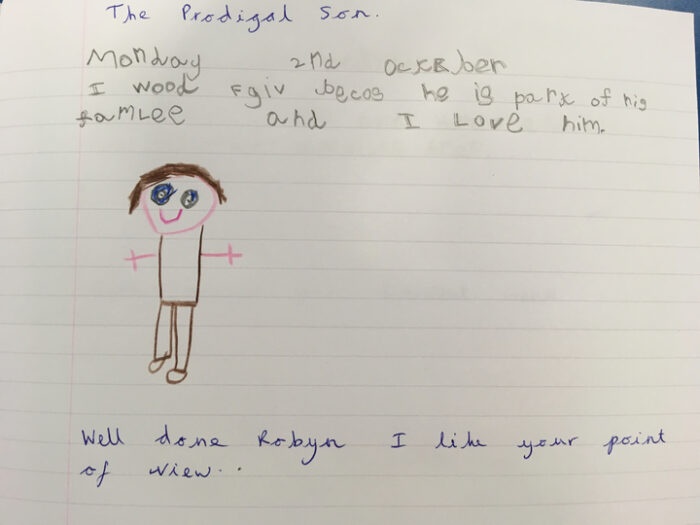 The Prodigal Son.
Monday 2nd ockBber
I wood Fgiv becos he is part of his
famLee and I Love him.
Well done Robyn I like your point
of view..